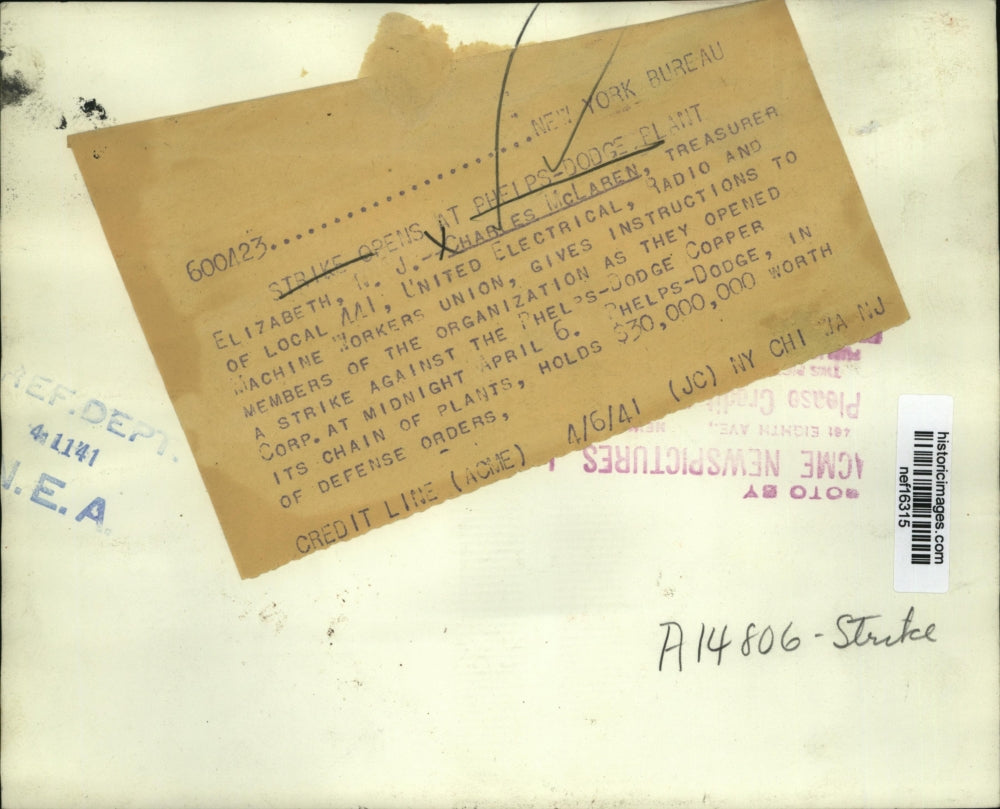 600423........................NEW YORK BUREAU
STRIKE OPENS AT PHELPS-DODGE PLANT
ELIZABETH, N. J.--CHARLES MCLAREN, TREASURER
OF LOCAL 441, UNITED ELECTRICAL, RADIO AND
MACHINE WORKERS UNION, GIVES INSTRUCTIONS TO
MEMBERS OF THE ORGANIZATION AS THEY OPENED
A STRIKE AGAINST THE PHELPS-DODGE COPPER
CORP. AT MIDNIGHT APRIL 6. PHELPS-DODGE, IN
ITS CHAIN OF PLANTS, HOLDS $30,000,000 WORTH
OF DEFENSE ORDERS,
CREDIT LINE (ACME) 4/6/41 (JC) NY CHI WA NJ
REF. DEPT.
4 1141
N.E.A.
Please Credit
461 EIGHTH AVE., NEW
ACME NEWSPICTURES
PHOTO BY
historicimages.com
nef16315
A14806 - Strike